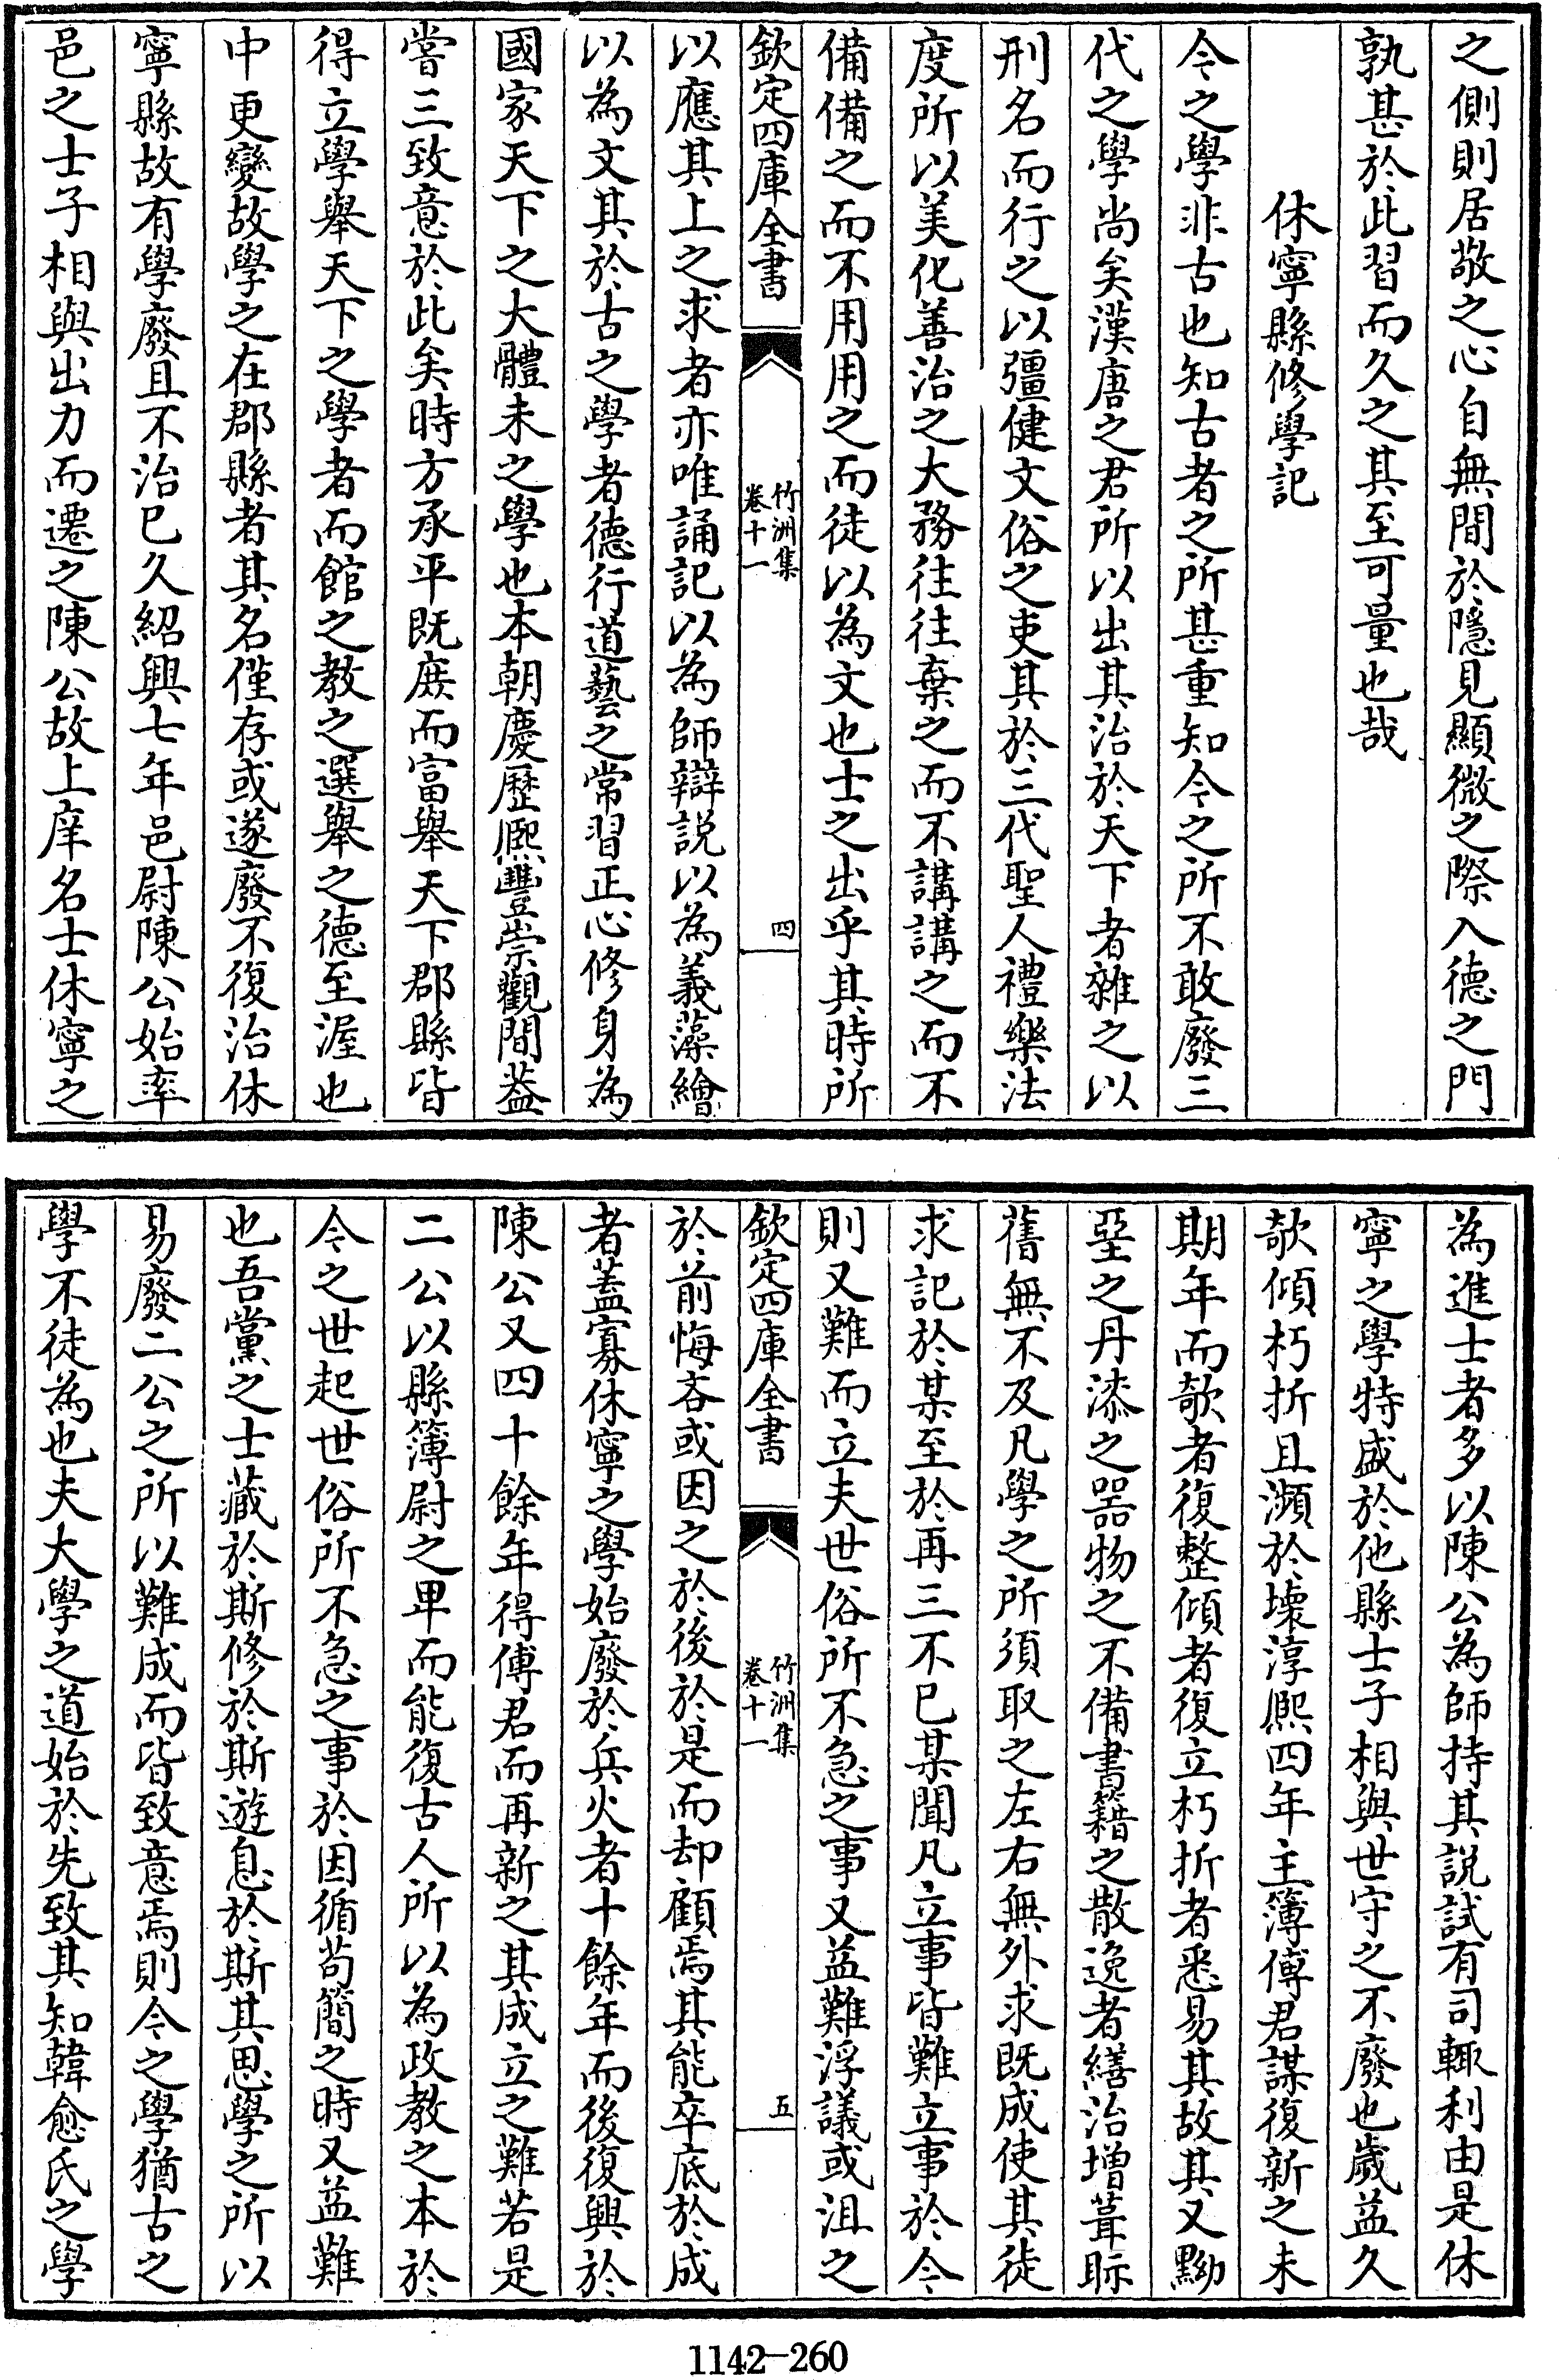 之側則居敬之心自無間於隱見顯微之際入德之門
孰甚於此習而久之其至可量也哉
休寧縣修學記
今之學非古也知古者之所甚重知今之所不敢廢三
代之學尚矣漢唐之君所以出其治於天下者雜之以
刑名而行之以彊健文俗之吏其於三代聖人禮樂法
度所以美化善治之大務往往棄之而不講講之而不
備備之而不用用之而徒以為文也士之出乎其時所
欽定四庫全書
竹洲集
卷十一
四
以應其上之求者亦唯誦記以為師辯説以為義藻繪
以為文其於古之學者德行道藝之常習正心修身為
國家天下之大體未之學也本朝慶歷熈豐崇觀間葢
嘗三致意於此矣時方承平既庶而富舉天下郡縣皆
得立學舉天下之學者而館之教之選舉之德至渥也
中更變故學之在郡縣者其名僅存或遂廢不復治休
寧縣故有學廢且不治已久紹興七年邑尉陳公始率
邑之士子相與出力而遷之陳公故上庠名士休寧之
為進士者多以陳公為師持其説試有司輒利由是休
寧之學特盛於他縣士子相與世守之不廢也歲益久
欹傾朽折且瀕於壞淳熈四年主簿傅君謀復新之未
期年而欹者復整傾者復立朽折者悉易其故其又黝
堊之丹漆之器物之不備書籍之散逸者繕治增葺眎
舊無不及凡學之所須取之左右無外求既成使其徒
求記於某至於再三不已某聞凡立事皆難立事於今
則又難而立夫世俗所不急之事又益難浮議或沮之
欽定四庫全書
竹洲集
卷十一
五
於前悔吝或因之於後於是而却顧焉其能卒底於成
者蓋寡休寧之學始廢於兵火者十餘年而後復興於
陳公又四十餘年得傅君而再新之其成立之難若是
二公以縣簿尉之卑而能復古人所以為政教之本於
今之世起世俗所不急之事於因循苟簡之時又益難
也吾黨之士藏於斯修於斯遊息於斯其思學之所以
易廢二公之所以難成而皆致意焉則今之學猶古之
學不徒為也夫大學之道始於先致其知韓愈氏之學
1142-260